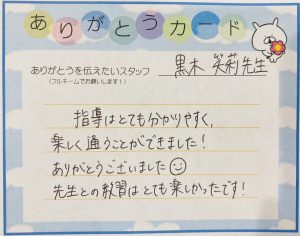 ありがとうカード
ありがとうを伝えたいスタッフ
(フルネームでお願いします!)
黒木 笑莉先生
指導はとても分かりやすく、
楽しく通うことができました!
ありがとうございました☺
先生との教習はとても楽しかったです!